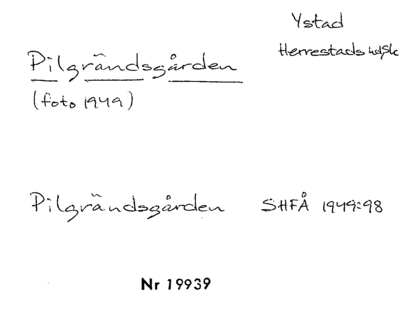 Ystad
Herrestads hd/Sk
Pilgrändsgården
(foto 1949)
Pilgrändsgården SHFÅ 1949:98
Nr 19939